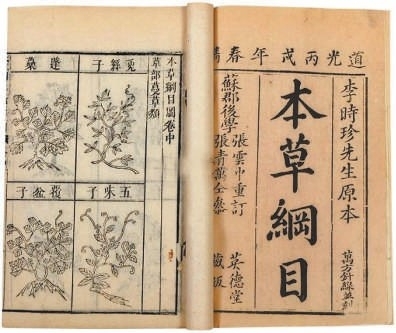 道光丙戌年春
李時珍先生原本
萬方針線並刻
本草綱目
蘇郡後學
張雲中重訂
張青萬仝參
英德堂
藏版
本草綱目圖卷中
草部蔓草類
兔絲子
蓬蘽
五味子
覆盆子